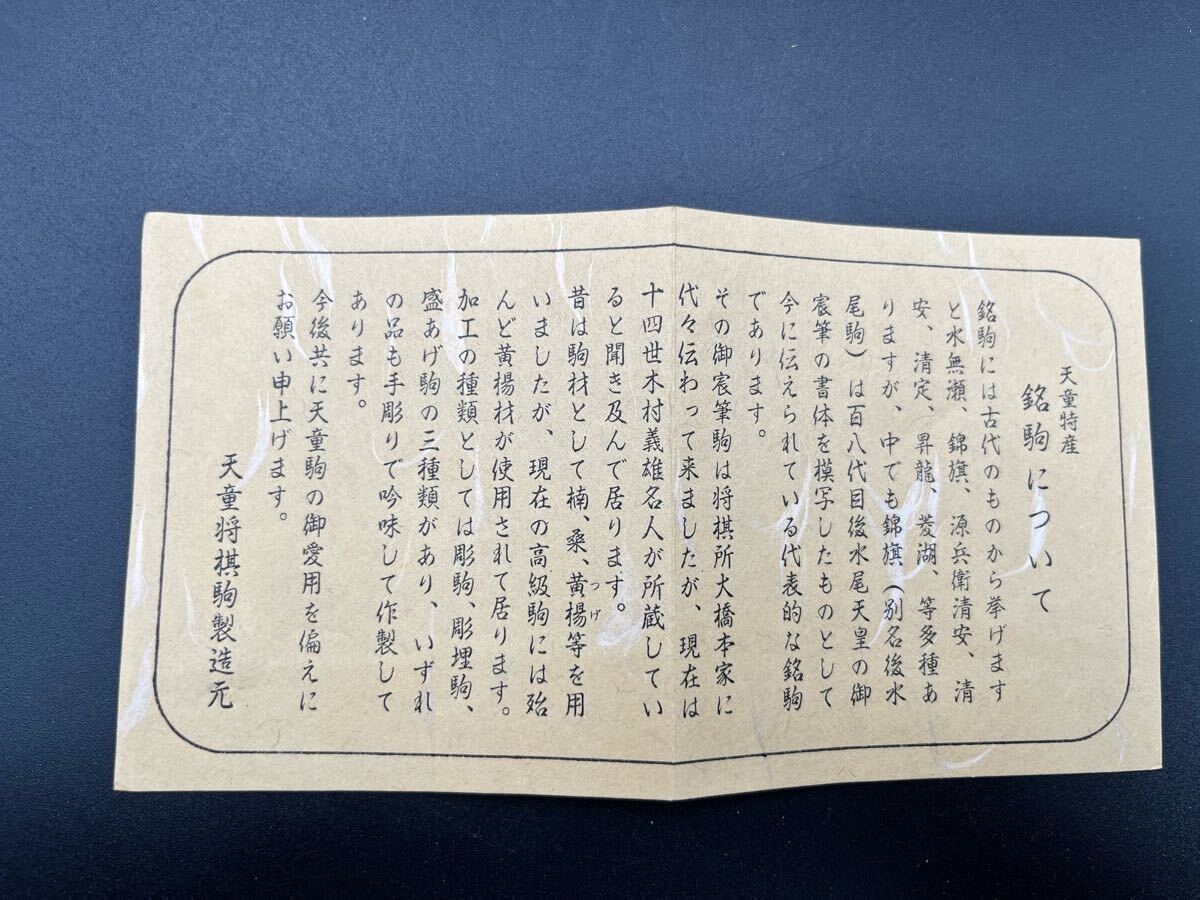 天童特産
銘駒について
銘駒には古代のものから挙げます
と水無瀬、錦旗、源兵衛清安、清
安、清定、昇龍、菱湖、等多種あ
りますが、中でも錦旗(別名後水
尾駒)は百八代目後水尾天皇の御
宸筆の書体を模写したものとして
今に伝えられている代表的な銘駒
であります。
その御宸筆駒は将棋所大橋本家に
代々伝わって来ましたが、現在は
十四世木村義雄名人が所蔵してい
ると聞き及んで居ります。
昔は駒材として楠、桑、黄楊等を用
つげ
いましたが、現在の高級駒には殆
んど黄楊材が使用されて居ります。
加工の種類としては彫駒、彫埋駒、
盛あげ駒の三種類があり、いずれ
の品も手彫りで吟味して作製して
あります。
今後共に天童駒の御愛用を偏えに
お願い申上げます。
天童将棋駒製造元